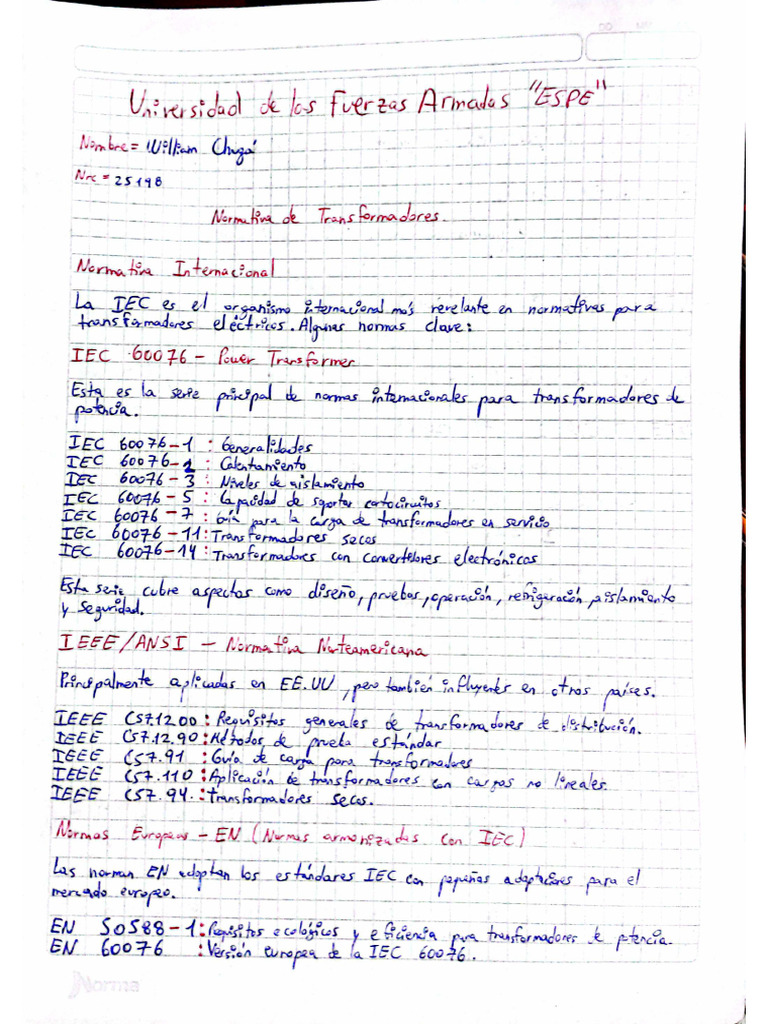 Universidad de las Fuerzas Armadas "ESPE"
Nombre = William Chugá
Nrc = 25198
Normativa de Transformadores.
Normativa Internacional
La IEC es el organismo internacional más revelante en normativas para
transformadores eléctricos. Algunas normas clave:
IEC 60076 - Power Transformer
Esta es la serie principal de normas internacionales para transformadores de
potencia.
IEC 60076-1 : Generalidades
IEC 60076-2 : Calentamiento
IEC 60076-3 : Niveles de aislamiento
IEC 60076-5 : Capacidad de soportar cortocircuitos
IEC 60076-7 : Guía para la carga de transformadores en servicio
IEC 60076-11: Transformadores secos
IEC 60076-14: Transformadores con convertidores electrónicos
Esta serie cubre aspectos como diseño, pruebas, operación, refrigeración, aislamiento
y seguridad.
IEEE/ANSI - Normativa Norteamericana
Principalmente aplicadas en EE.UU, pero también influyentes en otros países.
IEEE C57.12.00: Requisitos generales de transformadores de distribución.
IEEE C57.12.90: Métodos de prueba estándar
IEEE C57.91 : Guía de carga para transformadores
IEEE C57.110 : Aplicación de transformadores con cargas no lineales.
IEEE C57.94. : Transformadores secos.
Normas Europeas - EN (Normas armonizadas con IEC)
Las norman EN adoptan los estándares IEC con pequeñas adaptaciones para el
mercado europeo.
EN 50588-1: Requisitos ecológicos y eficiencia para transformadores de potencia.
EN 60076 : Versión europea de la IEC 60076.
Norma